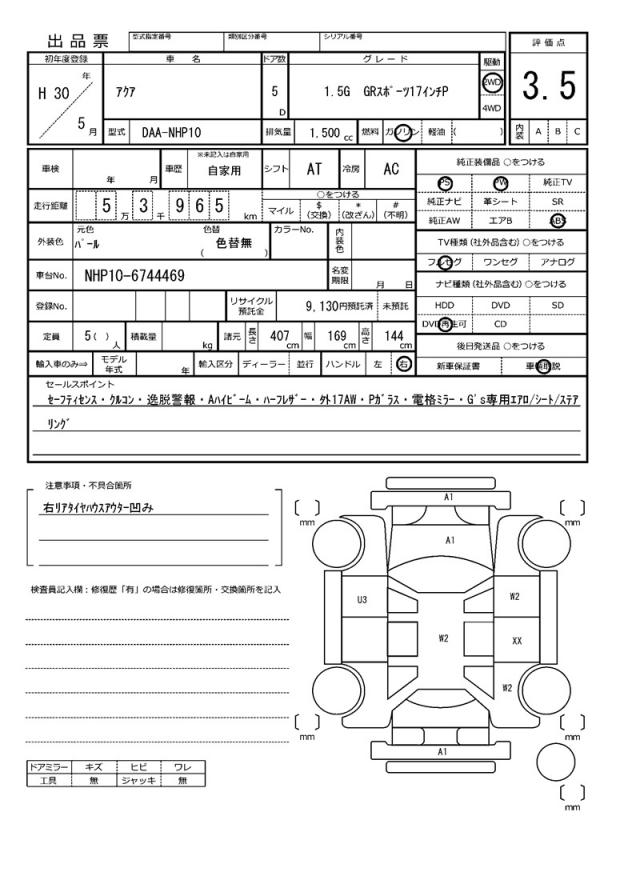 出品票
型式指定番号 類別区分番号 シリアル番号
評価点
3.5
内装 A B C
初年度登録 車名 ドア数 グレード 駆動
H 30 年 5 月
アクア
5 D
1.5G GRスポーツ17インチP
2WD
4WD
型式 DAA-NHP10 排気量 1.500 cc 燃料 ガソリン 軽油 ( )
車検 年 月 車歴 ※未記入は自家用 自家用 シフト AT 冷房 AC
走行距離 5 万 3 千 9 6 5 km
○をつける
マイル $(交換) *(改ざん) #(不明)
外装色 元色 パール 色替 ( 色替無 ) カラーNo. 内装色
車台No. NHP10-6744469 名変期限 月 日
登録No. リサイクル預託金 9,130円預託済 未預託
定員 5 ( ) 人 積載量 kg 諸元 長さ 407 cm 幅 169 cm 高さ 144 cm
輸入車のみ⇒ モデル年式 年 輸入区分 ディーラー 並行 ハンドル 左 右
純正装備品 ○をつける
PS PW 純正TV
純正ナビ 革シート SR
純正AW エアB ABS
TV種類(社外品含む)○をつける
フルセグ ワンセグ アナログ
ナビ種類(社外品含む)○をつける
HDD DVD SD
DVD再生可 CD
後日発送品 ○をつける
新車保証書 車輌取説
セールスポイント
セーフティセンス・クルコン・逸脱警報・Aハイビーム・ハーフレザー・外17AW・Pガラス・電格ミラー・G's専用エアロ/シート/ステア
リング
注意事項・不具合箇所
右リアタイヤハウスアウター凹み
検査員記入欄:修復歴「有」の場合は修復箇所・交換箇所を記入
ドアミラー キズ ヒビ ワレ
工具 無 ジャッキ 無
A1
[ ] mm
[ ] mm
A1
U3
W2
W2
XX
W2
[ ] mm
[ ] mm
A1
[ ] mm